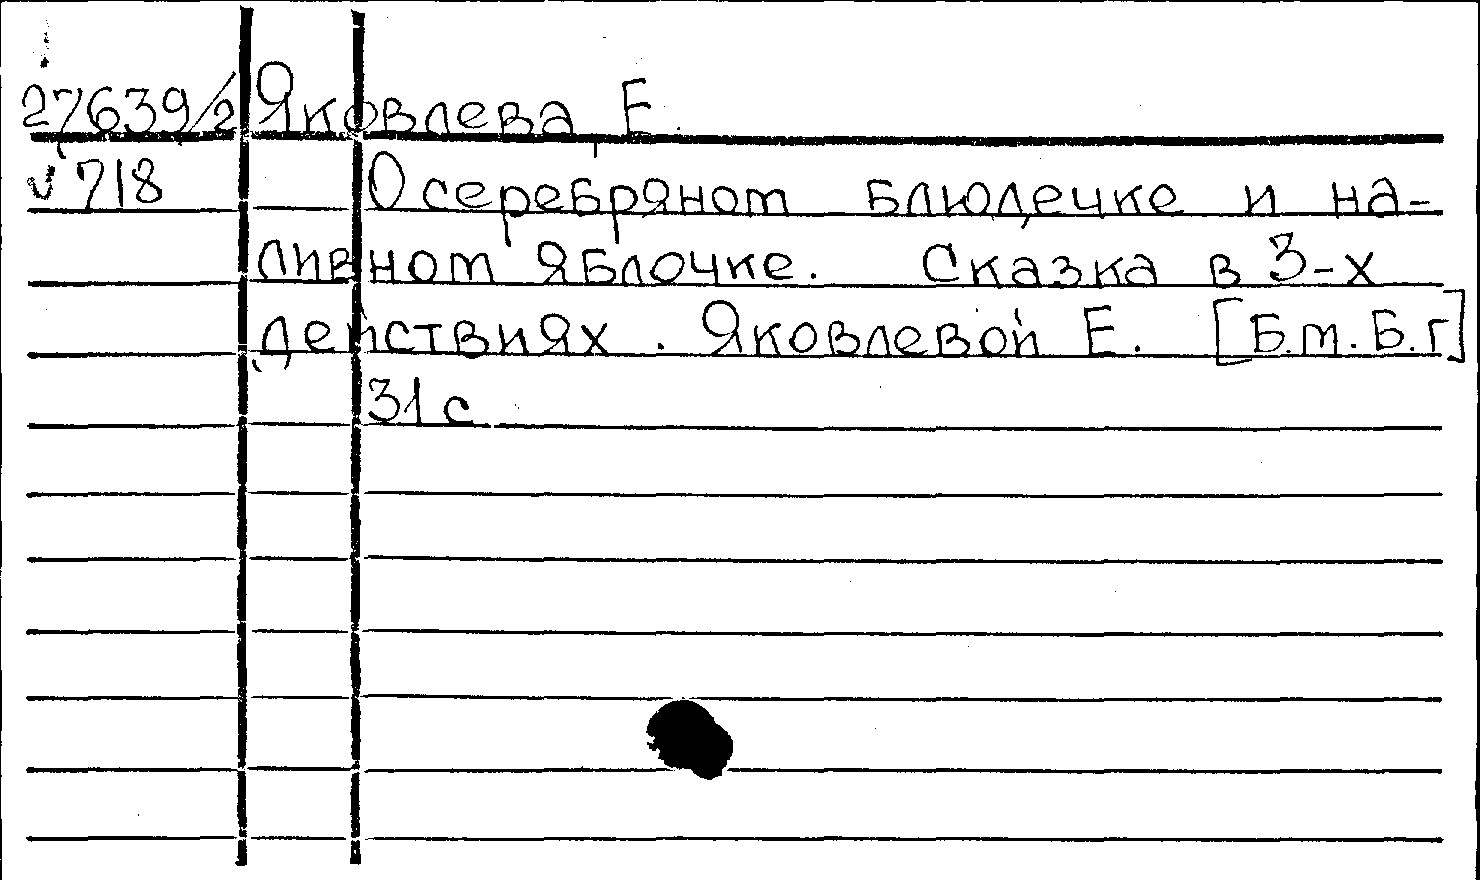 27639/2 Яковлева, Е.
√ 718 О серебряном блюдечке и на-
ливном яблочке. Сказка в 3-х
действиях. Яковлевой Е. [Б.м. Б.г]
31 с